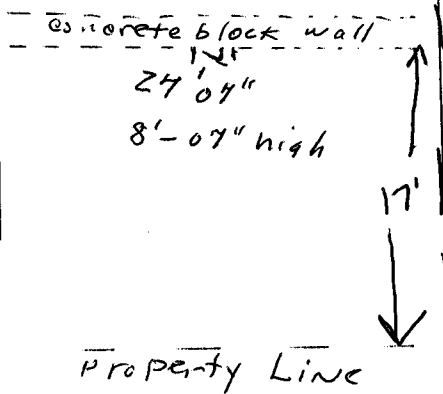 concrete block wall
24'04"
8'-04" high
17'
Property Line